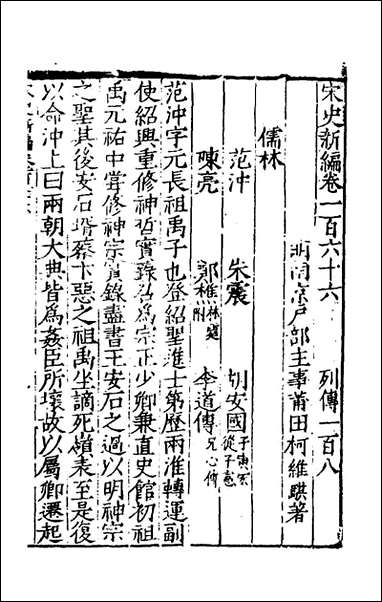 宋史新編卷一百六十六 列傳一百八
明南京户部主事莆田柯維騏著
儒林
范沖 朱震 胡安國 子寅宏 從子憲
陳亮 鄭樵 林霆附 李道傳 兄心傳
范沖字元長祖禹子也登紹聖進士第歷兩淮轉運副
使紹興重修神哲實錄召為宗正少卿兼直史館初祖
禹元祐中嘗修神宗實錄盡書王安石之過以明神宗
之聖其後安石壻蔡卞惡之祖禹坐謫死嶺表至是復
以命沖上曰兩朝大典皆為姦臣所壞故以屬卿遷起